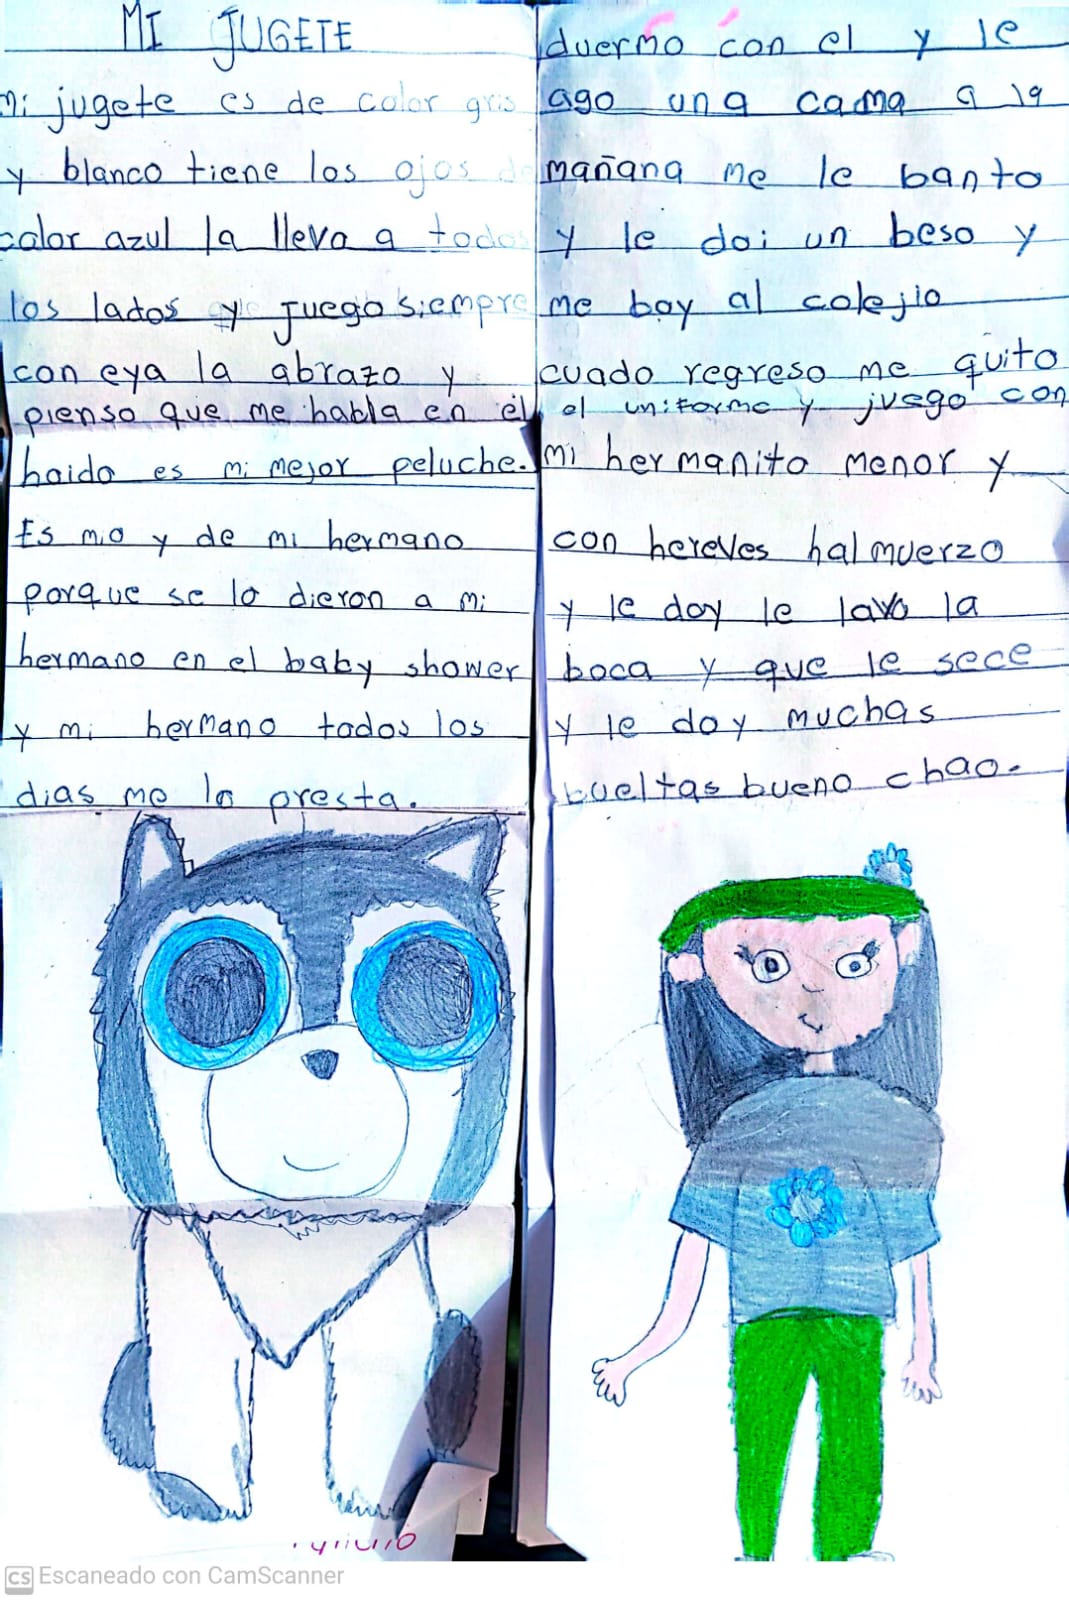 MI JUGETE
Mi jugete es de color gris
y blanco tiene los ojos de
color azul la lleva a todos
los lados y juego siempre
con eya la abrazo y
pienso que me habla en el
haido es mi mejor peluche.
Es mio y de mi hermano
porque se lo dieron a mi
hermano en el baby shower
y mi hermano todos los
dias me lo presta.
duermo con el y le
ago una cama a la
mañana me le banto
y le doi un beso y
me boy al colejio
cuado regreso me quito
el uniforme y juego con
mi hermanito menor y
con hereves halmuerzo
y le doy le lavo la
boca y que le sece
y le doy muchas
bueltas bueno chao.
CS Escaneado con CamScanner